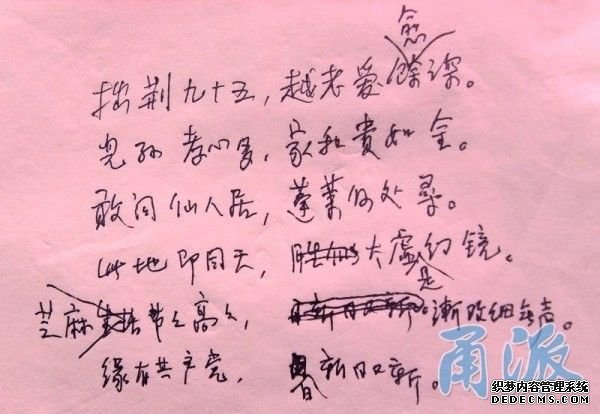 愈
拙荆九十五，越老爱深。
儿孙孝心多，家和贵如金。
敢问仙人居，蓬莱何处寻。
此地即同天，大虚幻镜。
是
芝麻节节高，渐改细无声。
缘有共产党，日新日日新。
甬派
织梦内容管理系统
DEDECMS.COM